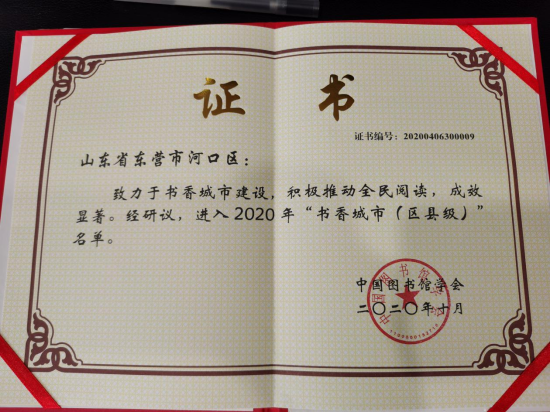 证 书
证书编号：20200406300009
山东省东营市河口区：
致力于书香城市建设，积极推动全民阅读，成效
显著。经研议，进入2020年“书香城市（区县级）”
名单。
中国图书馆学会
二〇二〇年十月